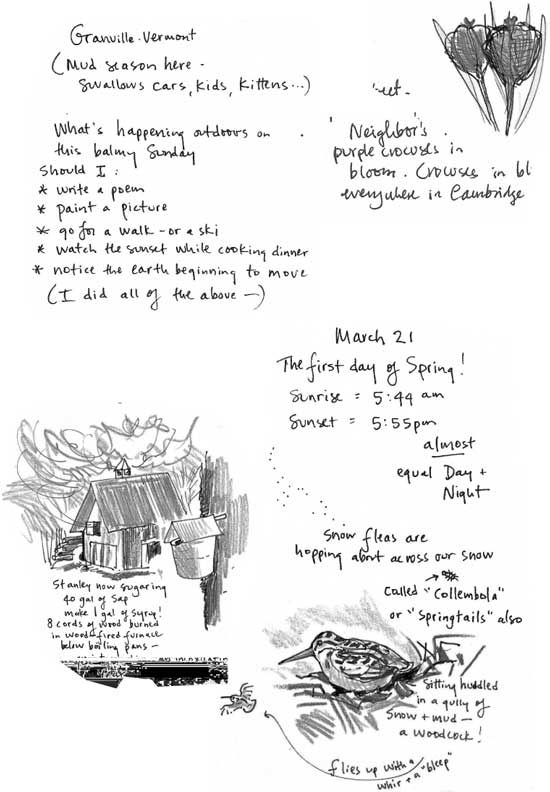 Granville - Vermont
(Mud season here -
swallows cars, kids, kittens...)
What's happening outdoors on
this balmy Sunday
Should I :
* write a poem
* paint a picture
* go for a walk - or a ski
* watch the sunset while cooking dinner
* notice the earth beginning to move
(I did all of the above —)
Neighbor's
purple crocuses in
bloom. Crocuses in bl
everywhere in Cambridge
March 21
The first day of Spring!
Sunrise = 5:44 am
Sunset = 5:55 pm
almost
equal Day +
Night
Snow fleas are
hopping about across our snow
Called "Collembola"
or "Springtails" also
Stanley now sugaring
40 gal of sap
make 1 gal of syrup!
8 cords of wood burned
in wood-fired furnace
below boiling pans —
Sitting huddled
in a gully of
snow + mud —
a woodcock!
flies up with a
whir + a "bleep"